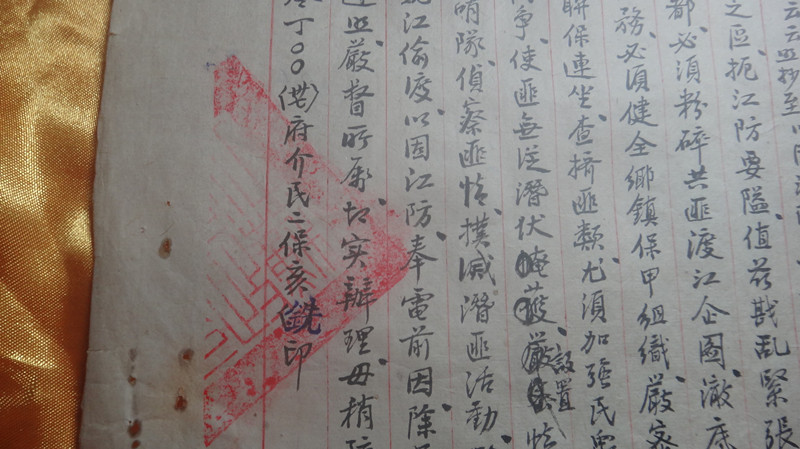 云云照抄至
之區扼江防要隘值茲戡乱緊張
都必須粉碎共匪渡江企圖澈底
務必須健全鄉鎮保甲組織嚴密
聯保連坐查擠匪類尤須加强民
爭使匪無從潛伏 設置
哨隊偵察匪情撲滅潛匪活動
江偷渡以固江防奉電前因除
照嚴督所屬切实辦理毋稍
丁〇〇府介民二保亥 印